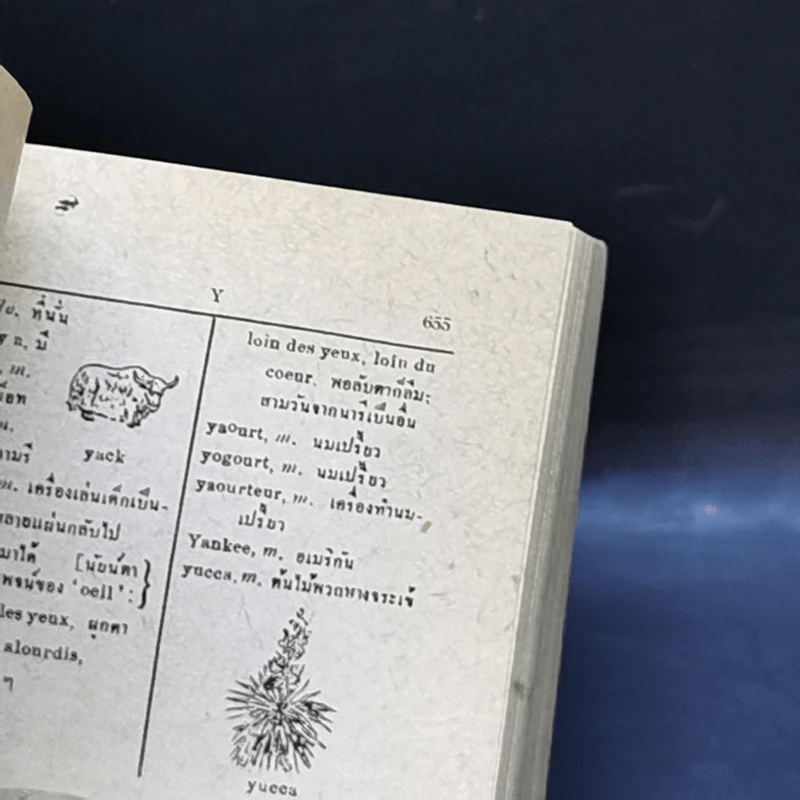 Y
655
ที่นั่น
y n, มี
m.
yack
ตามรี
m. เครื่องเล่นเด็กเป็น-
หลายแผ่นกลับไป
มาได้ [นัยน์ตา
พจน์ของ 'oeil':
les yeux, ผูกตา
alourdis,
ๆ
loin des yeux, loin du
coeur. พอลับตาก็ลืม;
สามวันจากนารีเป็นอื่น
yaourt, m. นมเปรี้ยว
yogourt, m. นมเปรี้ยว
yaourteur, m. เครื่องทำนม-
เปรี้ยว
Yankee, m. อเมริกัน
yucca, m. ต้นไม้พวกหางจระเข้
yucca